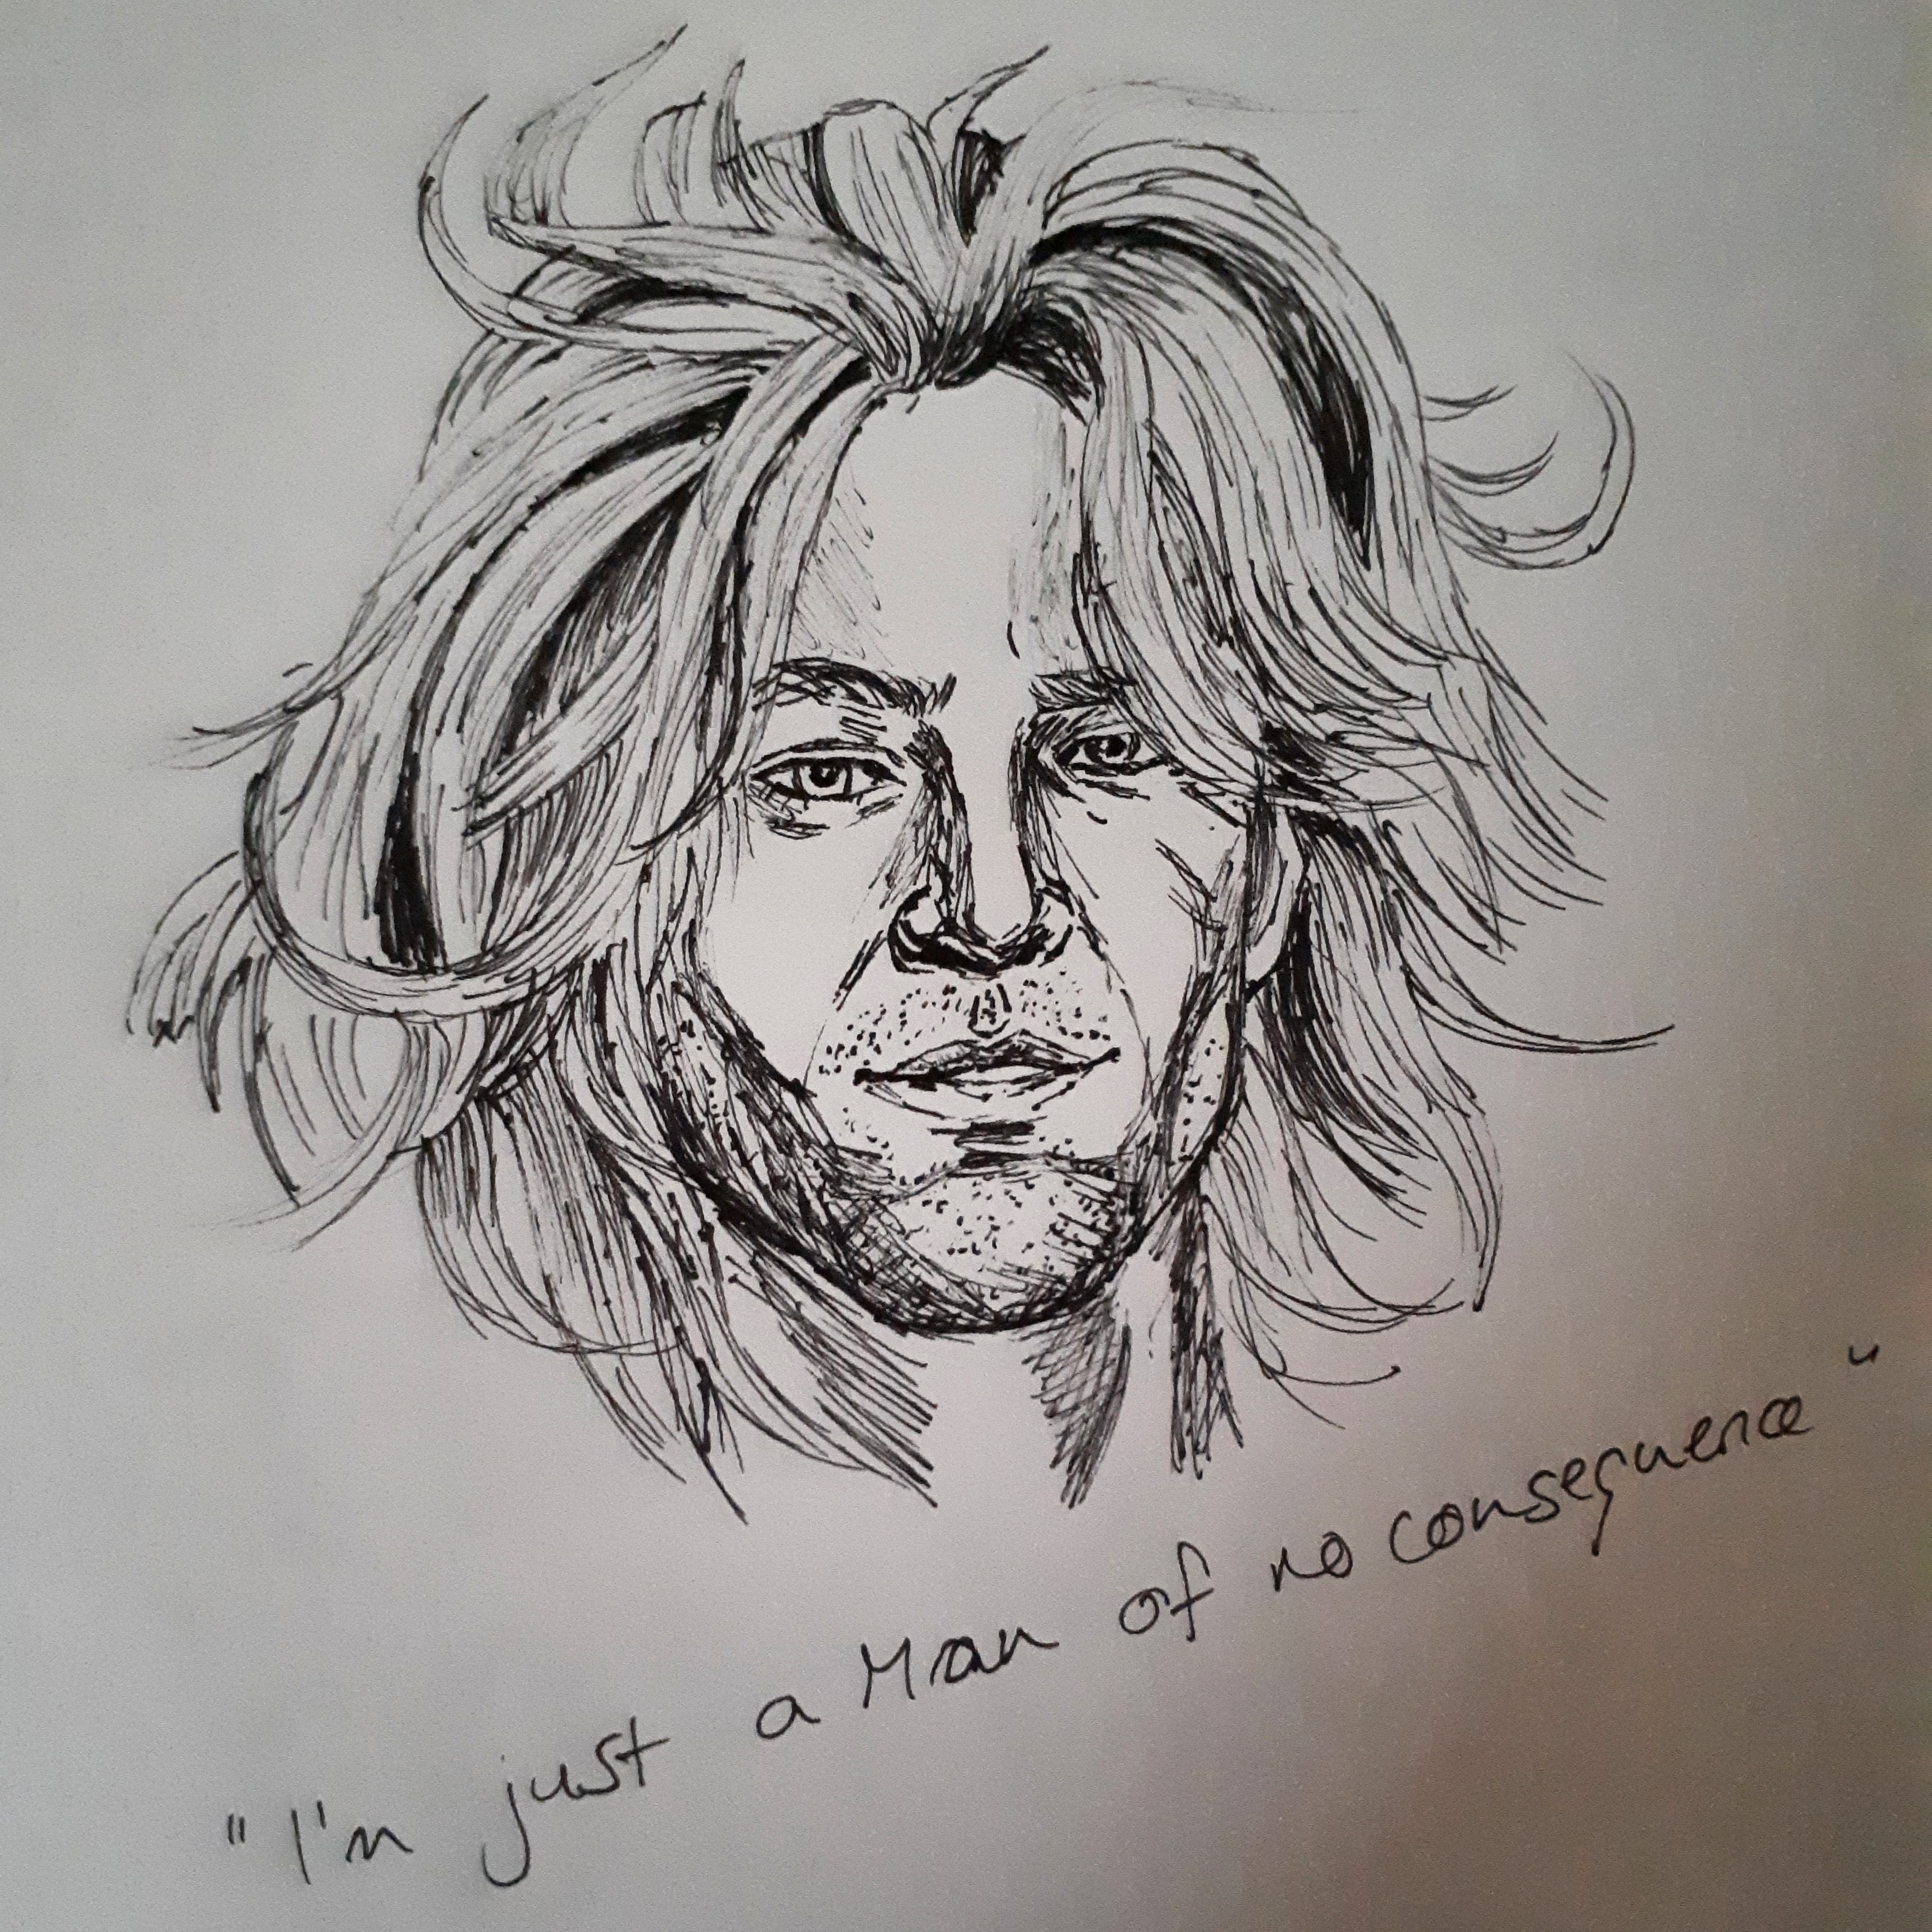 "I'm just a Man of no consequence"